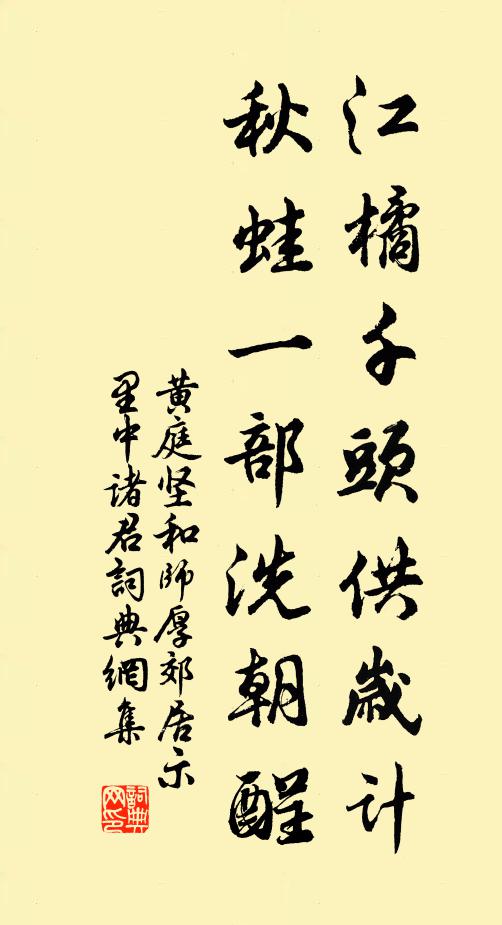 江橘千頭供歲计
秋蛙一部洗朝酲
黄庭坚和師厚郊居示
里中诸君詞典網集
詞典网印